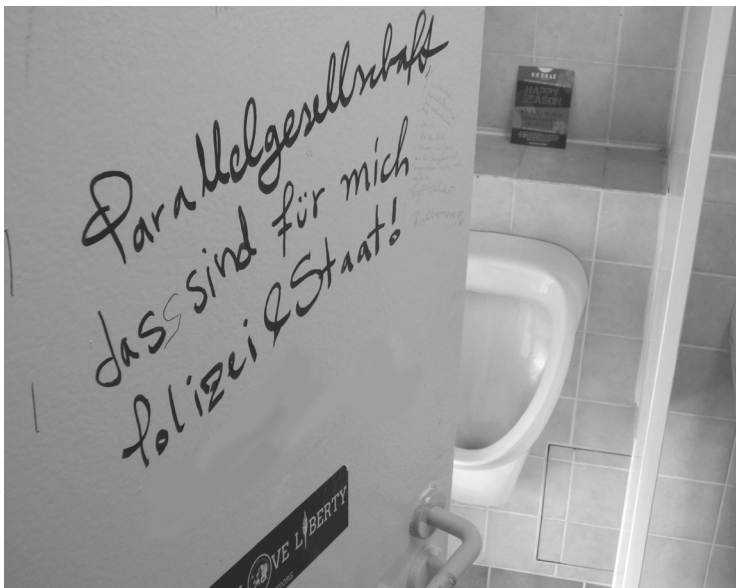 Parallelgesellschaft
dass sind für mich
Polizei & Staat!
OVE LIBERTY